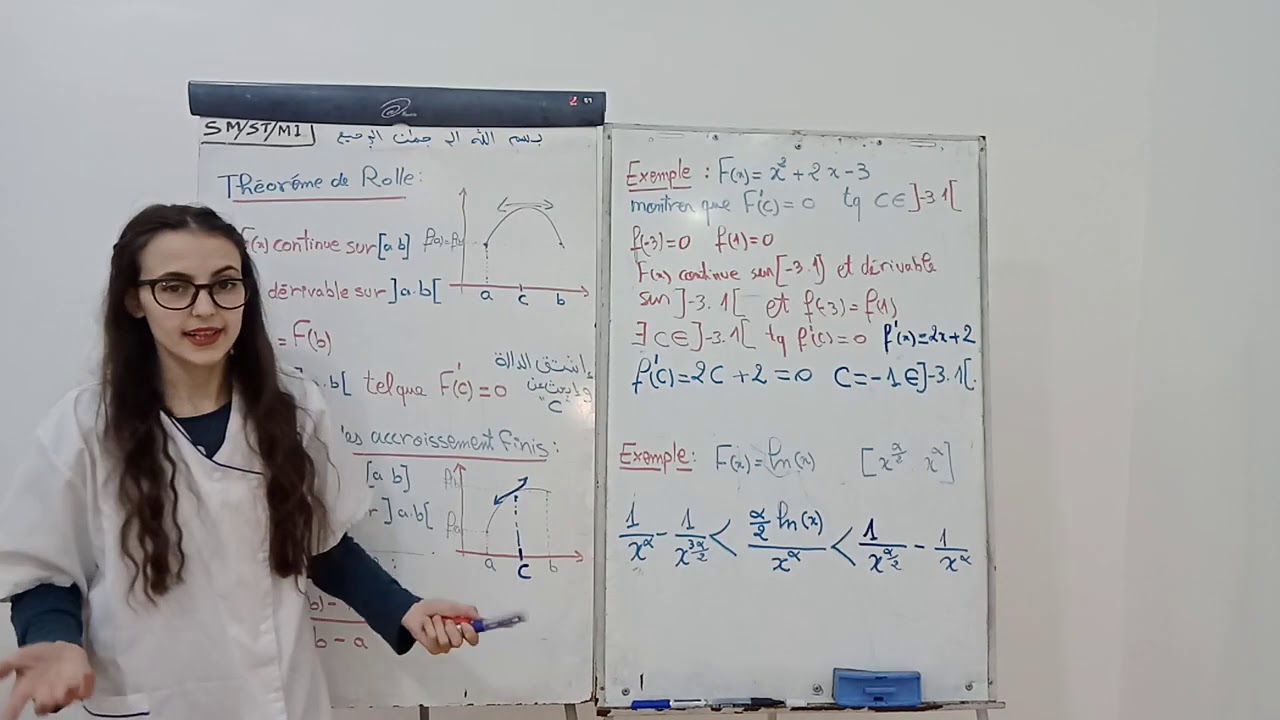 SM/ST/MI
بسم الله الرحمان الرحيم
Théoréme de Rolle:
F(x) continue sur [a b]
dérivable sur ]a.b[
= F(b)
]a.b[ tel que F'(c) = 0
إشتق الدالة
وابحث عن
"c"
f(a)=f(b)
a c b
les accroissement finis:
[a b]
r ]a.b[
a c b
b - a
Exemple: F(x) = x² + 2x - 3
montrer que F'(c) = 0 tq c ∈ ]-3.1[
f(-3) = 0 f(1) = 0
F(x) continue sur [-3.1] et dérivable
sur ]-3.1[ et f(-3) = f(1)
∃ c ∈ ]-3.1[ tq f'(c) = 0 f'(x) = 2x + 2
f'(c) = 2c + 2 = 0 c = -1 ∈ ]-3.1[.
Exemple: F(x) = ln(x) [x^(α/2) x^α]
1/x^α - 1/x^(3α/2) < (α/2 ln(x))/x^α < 1/x^(α/2) - 1/x^α